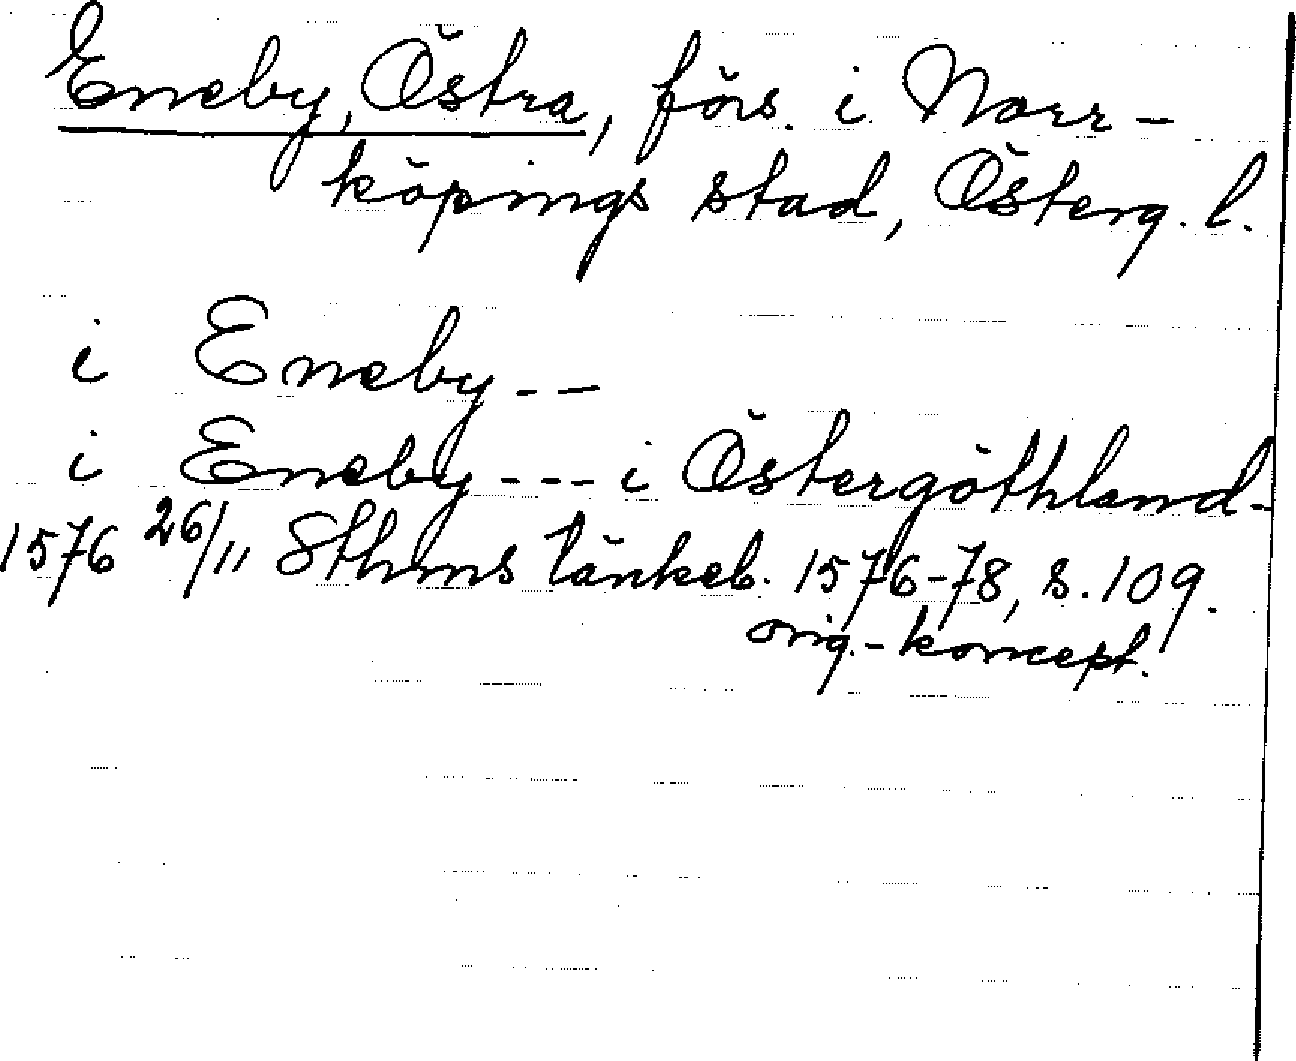 Eneby, Östra, förs. i Norr-
köpings stad, Österg. l.
i Eneby - -
i Eneby - - - i Östergöthland -
1576 26/11 Sthms tänkeb. 1576-78, s. 109.
orig.-koncept.